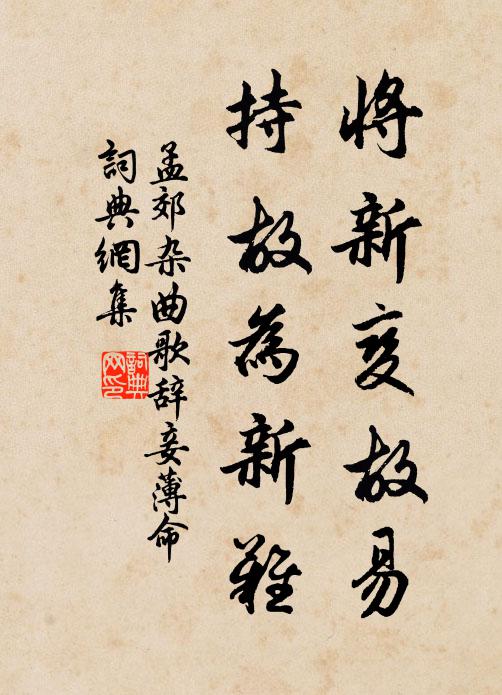 将新变故易
持故為新難
孟郊杂曲歌辞妾薄命
詞典網集
詞典網印